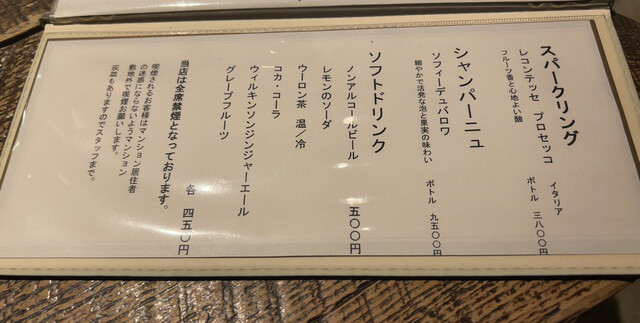 スパークリング
レコンテッセ プロセッコ イタリア ボトル 三八〇〇円
フルーツ香と心地よい酸
シャンパーニュ
ソフィーデュバロワ ボトル 九五〇〇円
細やかで活発な泡と果実の味わい
ソフトドリンク
ノンアルコールビール 五〇〇円
レモンのソーダ
ウーロン茶 温／冷
コカ・コーラ
ウィルキンソンジンジャーエール
グレープフルーツ
各 四五〇円
当店は全席禁煙となっております。
喫煙されるお客様はマンション居住者
の迷惑にならないようマンション
敷地外で喫煙お願いします。
灰皿もありますのでスタッフまで。